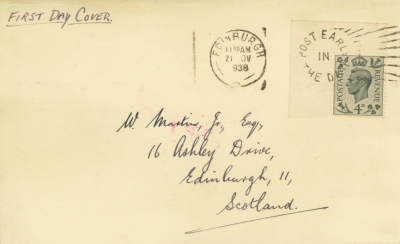 FIRST DAY COVER.
EDINBURGH
11 30 AM
21 NOV
1938
POST EARLY
IN
THE DAY
POSTAGE
REVENUE
4D
W. Martin, Jr, Esq,
16 Ashley Drive,
Edinburgh, 11,
Scotland.